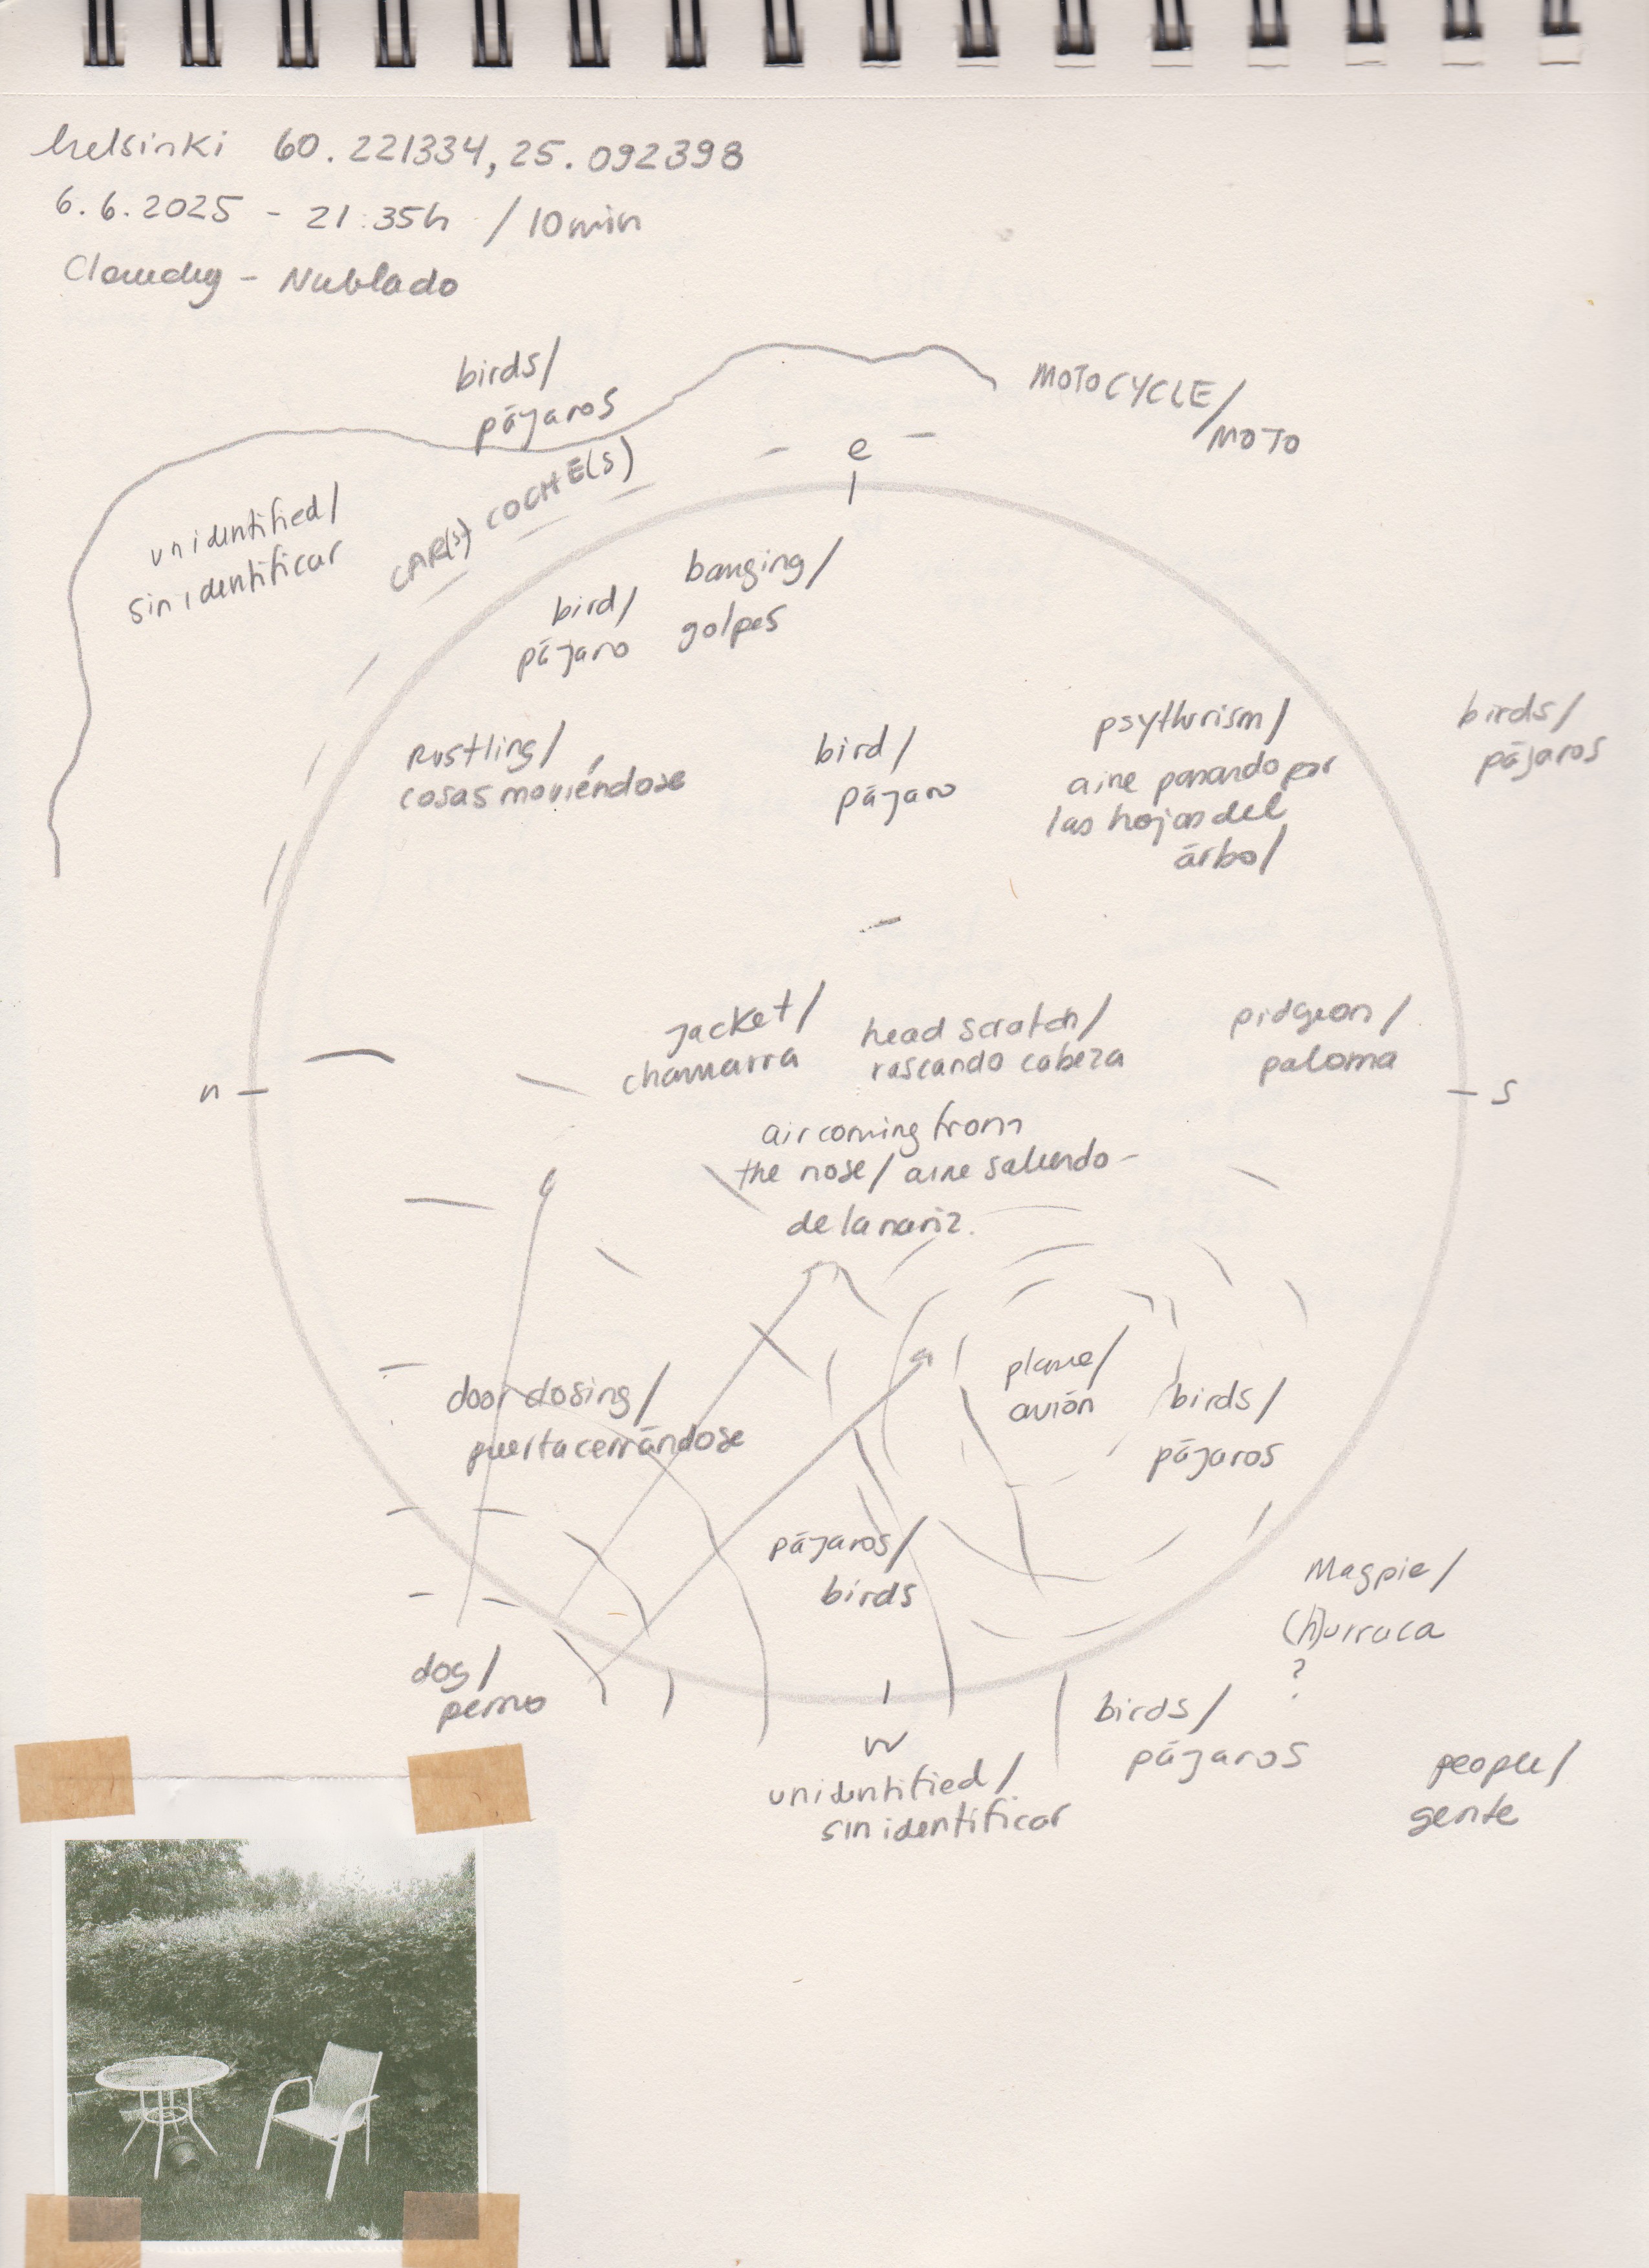 helsinki 60.221334, 25.092398
6.6.2025 - 21:35h / 10min
Cloudy - Nublado
birds/
pájaros
MOTOCYCLE/
MOTO
e
CAR(s) COCHE(S)
unidentified/
sin identificar
banging/
golpes
bird/
pájaro
Rustling/
cosas moviéndose
bird/
pájaro
psythurism/
aire pasando por
las hojas del
árbol
birds/
pájaros
jacket/
chamarra
head scratch/
rascando cabeza
pidgeon/
paloma
n
s
air coming from
the nose/ aire saliendo
de la nariz.
door closing/
puerta cerrándose
plane/
avión
birds/
pájaros
pájaros/
birds
Magpie/
(h)urraca
?
dog/
perro
w
unidentified/
sin identificar
birds/
pájaros
people/
gente